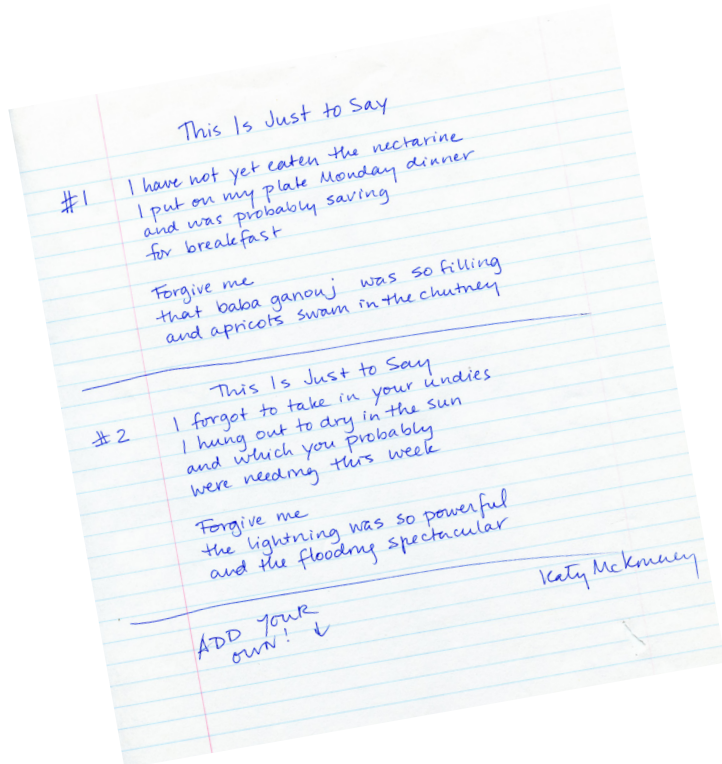 This Is Just to Say
#1 I have not yet eaten the nectarine
I put on my plate Monday dinner
and was probably saving
for breakfast
Forgive me
that baba ganouj was so filling
and apricots swam in the chutney
This Is Just to Say
#2 I forgot to take in your undies
I hung out to dry in the sun
and which you probably
were needing this week
Forgive me
the lightning was so powerful
and the flooding spectacular
Katy McKinney
ADD YOUR
OWN! ↓